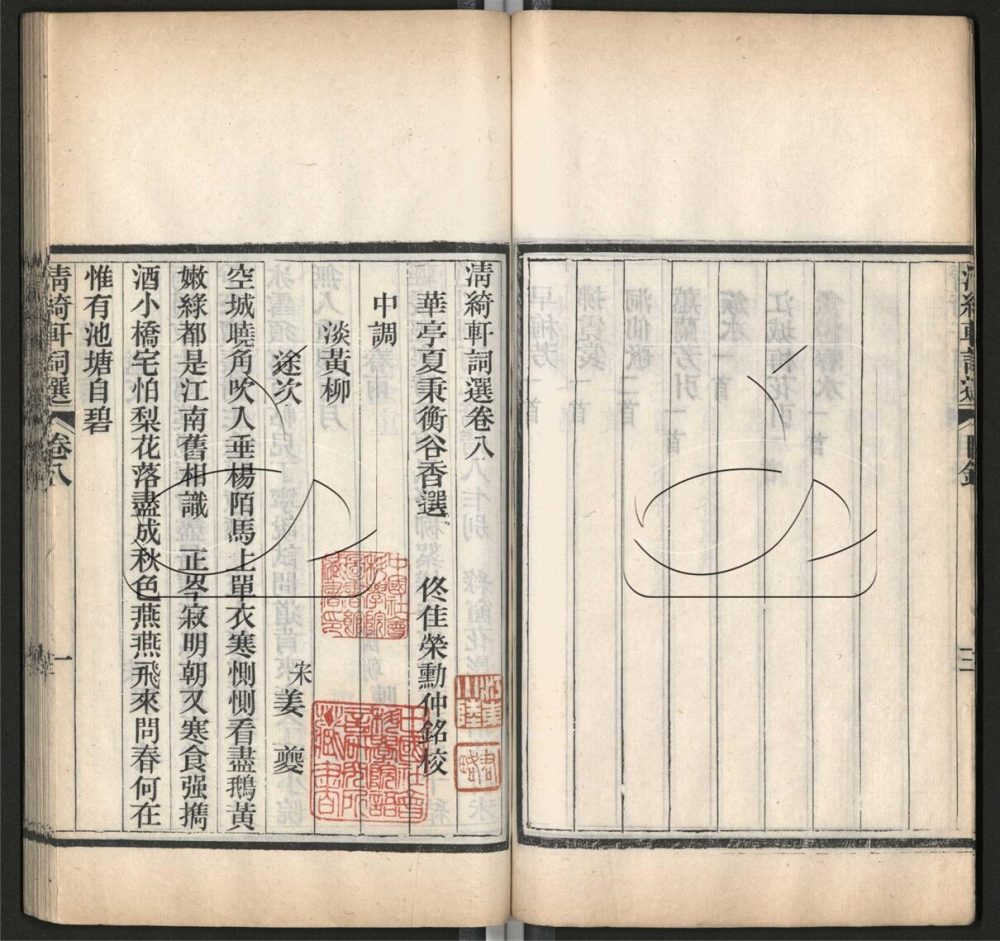 清綺軒詞選卷八
華亭夏秉衡谷香選 佟佳榮勳仲銘校
中調
淡黃柳
途次 宋姜夔
空城曉角吹入垂楊陌馬上單衣寒惻惻看盡鵝黃
嫩綠都是江南舊相識 正岑寂明朝又寒食强擕
酒小橋宅怕梨花落盡成秋色燕燕飛來問春何在
惟有池塘自碧
清綺軒詞選 卷八 一